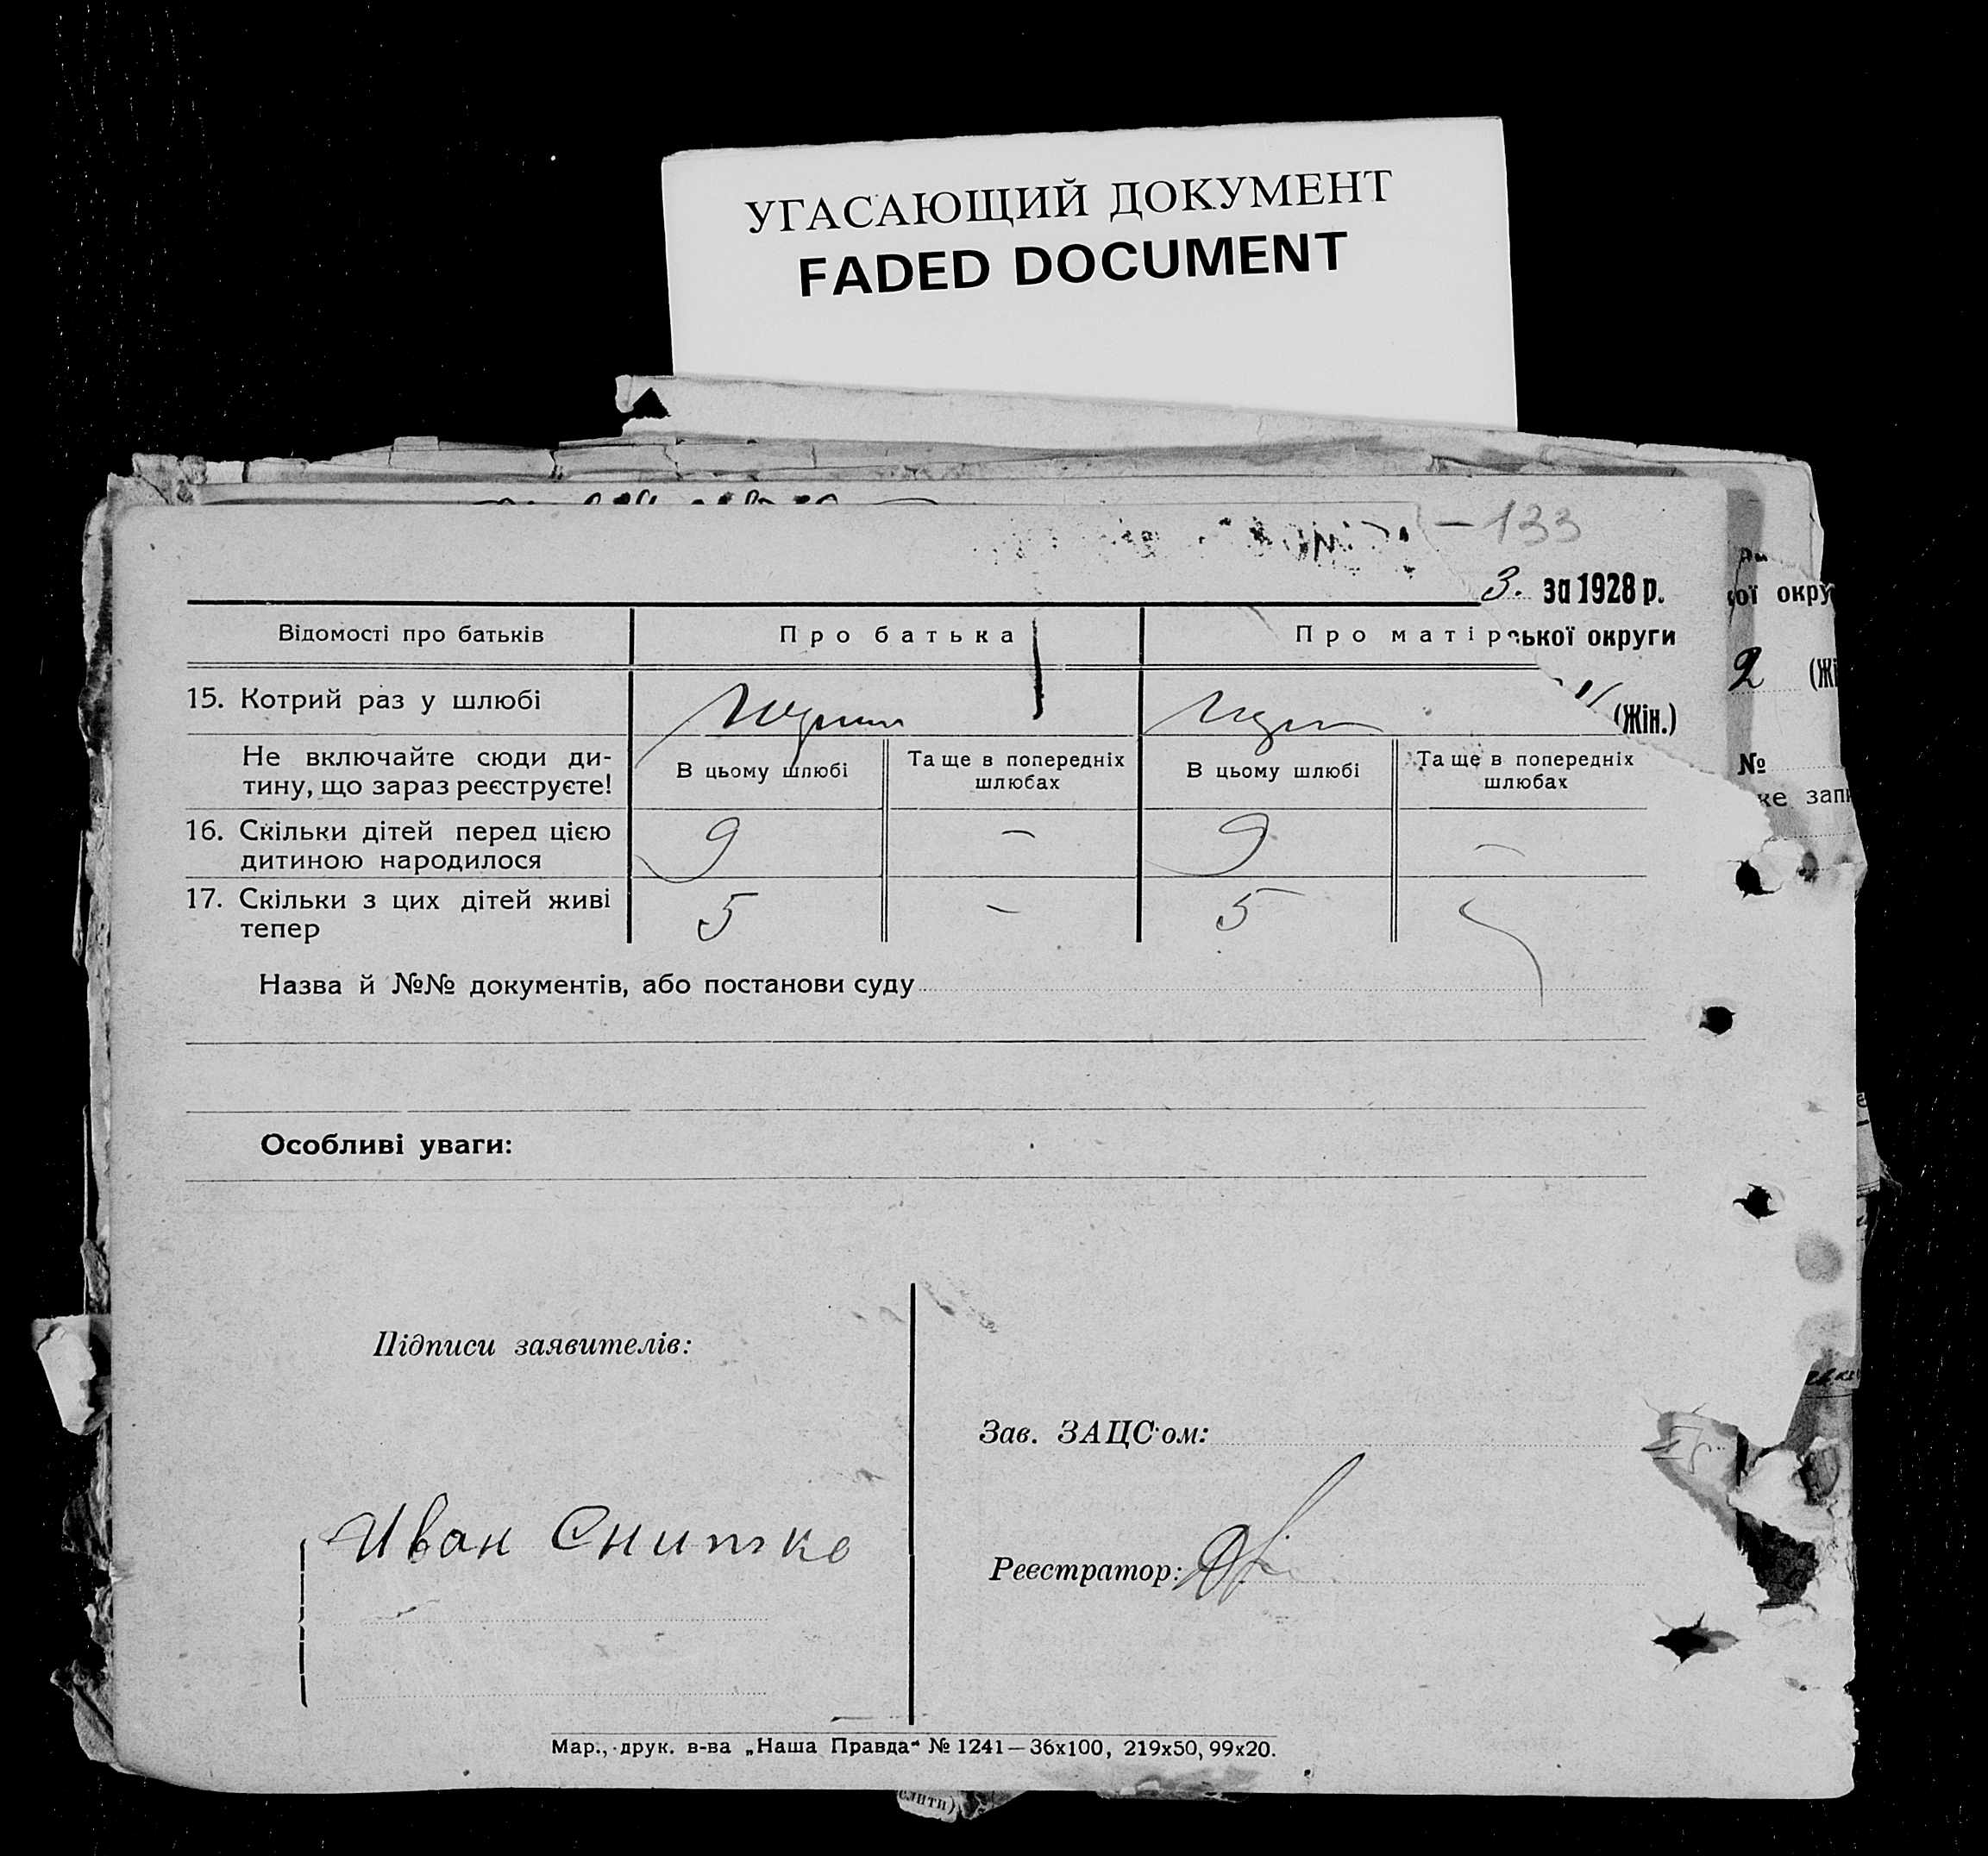 УГАСАЮЩИЙ ДОКУМЕНТ
FADED DOCUMENT
– 133
3. за 1928 р.
ої окру
Відомості про батьків
Про батька
Про матір
ської округи
2 (Жі
15. Котрий раз у шлюбі
(Жін.)
Не включайте сюди ди-
тину, що зараз реєструєте!
В цьому шлюбі
Та ще в попередніх
шлюбах
В цьому шлюбі
Та ще в попередніх
шлюбах
№
же запи
16. Скільки дітей перед цією
дитиною народилося
9 – 9 –
17. Скільки з цих дітей живі
тепер
5 – 5
Назва й №№ документів, або постанови суду
Особливі уваги:
Підписи заявителів:
Зав. ЗАЦС'ом:
Иван Снитко
Реєстратор:
Мар., друк. в-ва „Наша Правда“ № 1241—36х100, 219х50, 99х20.